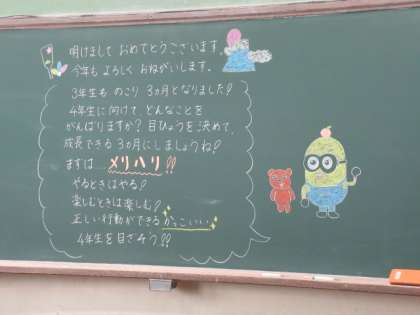 明けまして おめでとうございます。
今年も よろしく おねがいします。
3年生も のこり 3ヵ月となりました!
4年生に向けて、どんなことを
がんばりますか? 目ひょうを決めて、
成長できる 3ヵ月にしましょうね!
まずは メリハリ!!
やるときはやる!
楽しむときは楽しむ!
正しい行動ができる かっこいい
4年生を目ざそう!!